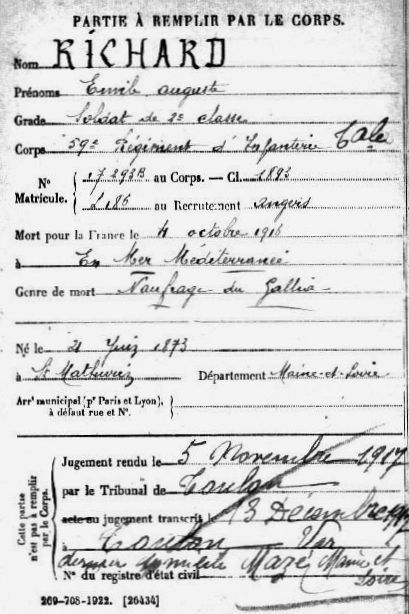 PARTIE À REMPLIR PAR LE CORPS.
Nom RICHARD
Prénoms Emile auguste
Grade Soldat de 2e classe
Corps 59e Régiment d'Infanterie Cale
N° Matricule. { 17293B au Corps. — Cl. 1893
2186 au Recrutement angers
Mort pour la France le 4 octobre 1916
à En Mer Méditerranée
Genre de mort Naufrage du Gallia
Né le 21 Juin 1873
à St Mathurin Département Maine-et-Loire
Arrt municipal (pr Paris et Lyon), à défaut rue et N°. {
Cette partie n'est pas à remplir par le Corps.
Jugement rendu le 5 Novembre 1917
par le Tribunal de Toulon
acte ou jugement transcrit le 13 Décembre 1917
à Toulon Var
dernier domicile Mazé Maine et Loire
N° du registre d'état civil
269-708-1922. [26434]